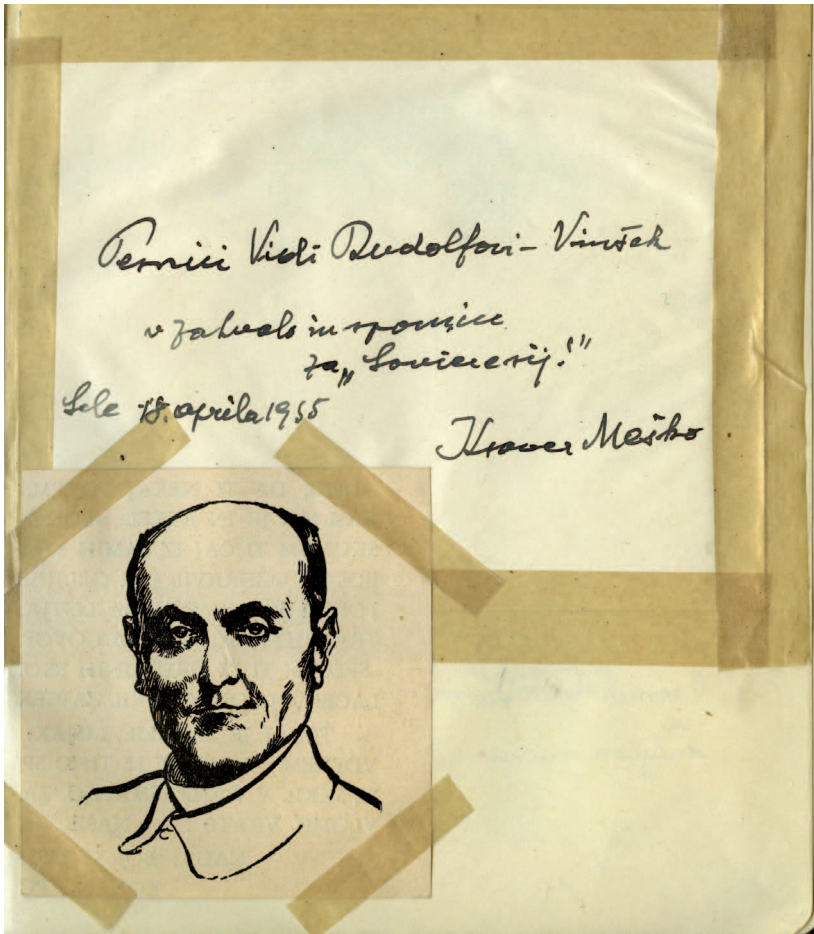 Pesnici Vidi Rudolfovi - Vinšek
v zahvalo in spomin
za „
Sele 18. aprila 1955
Ksaver Meško